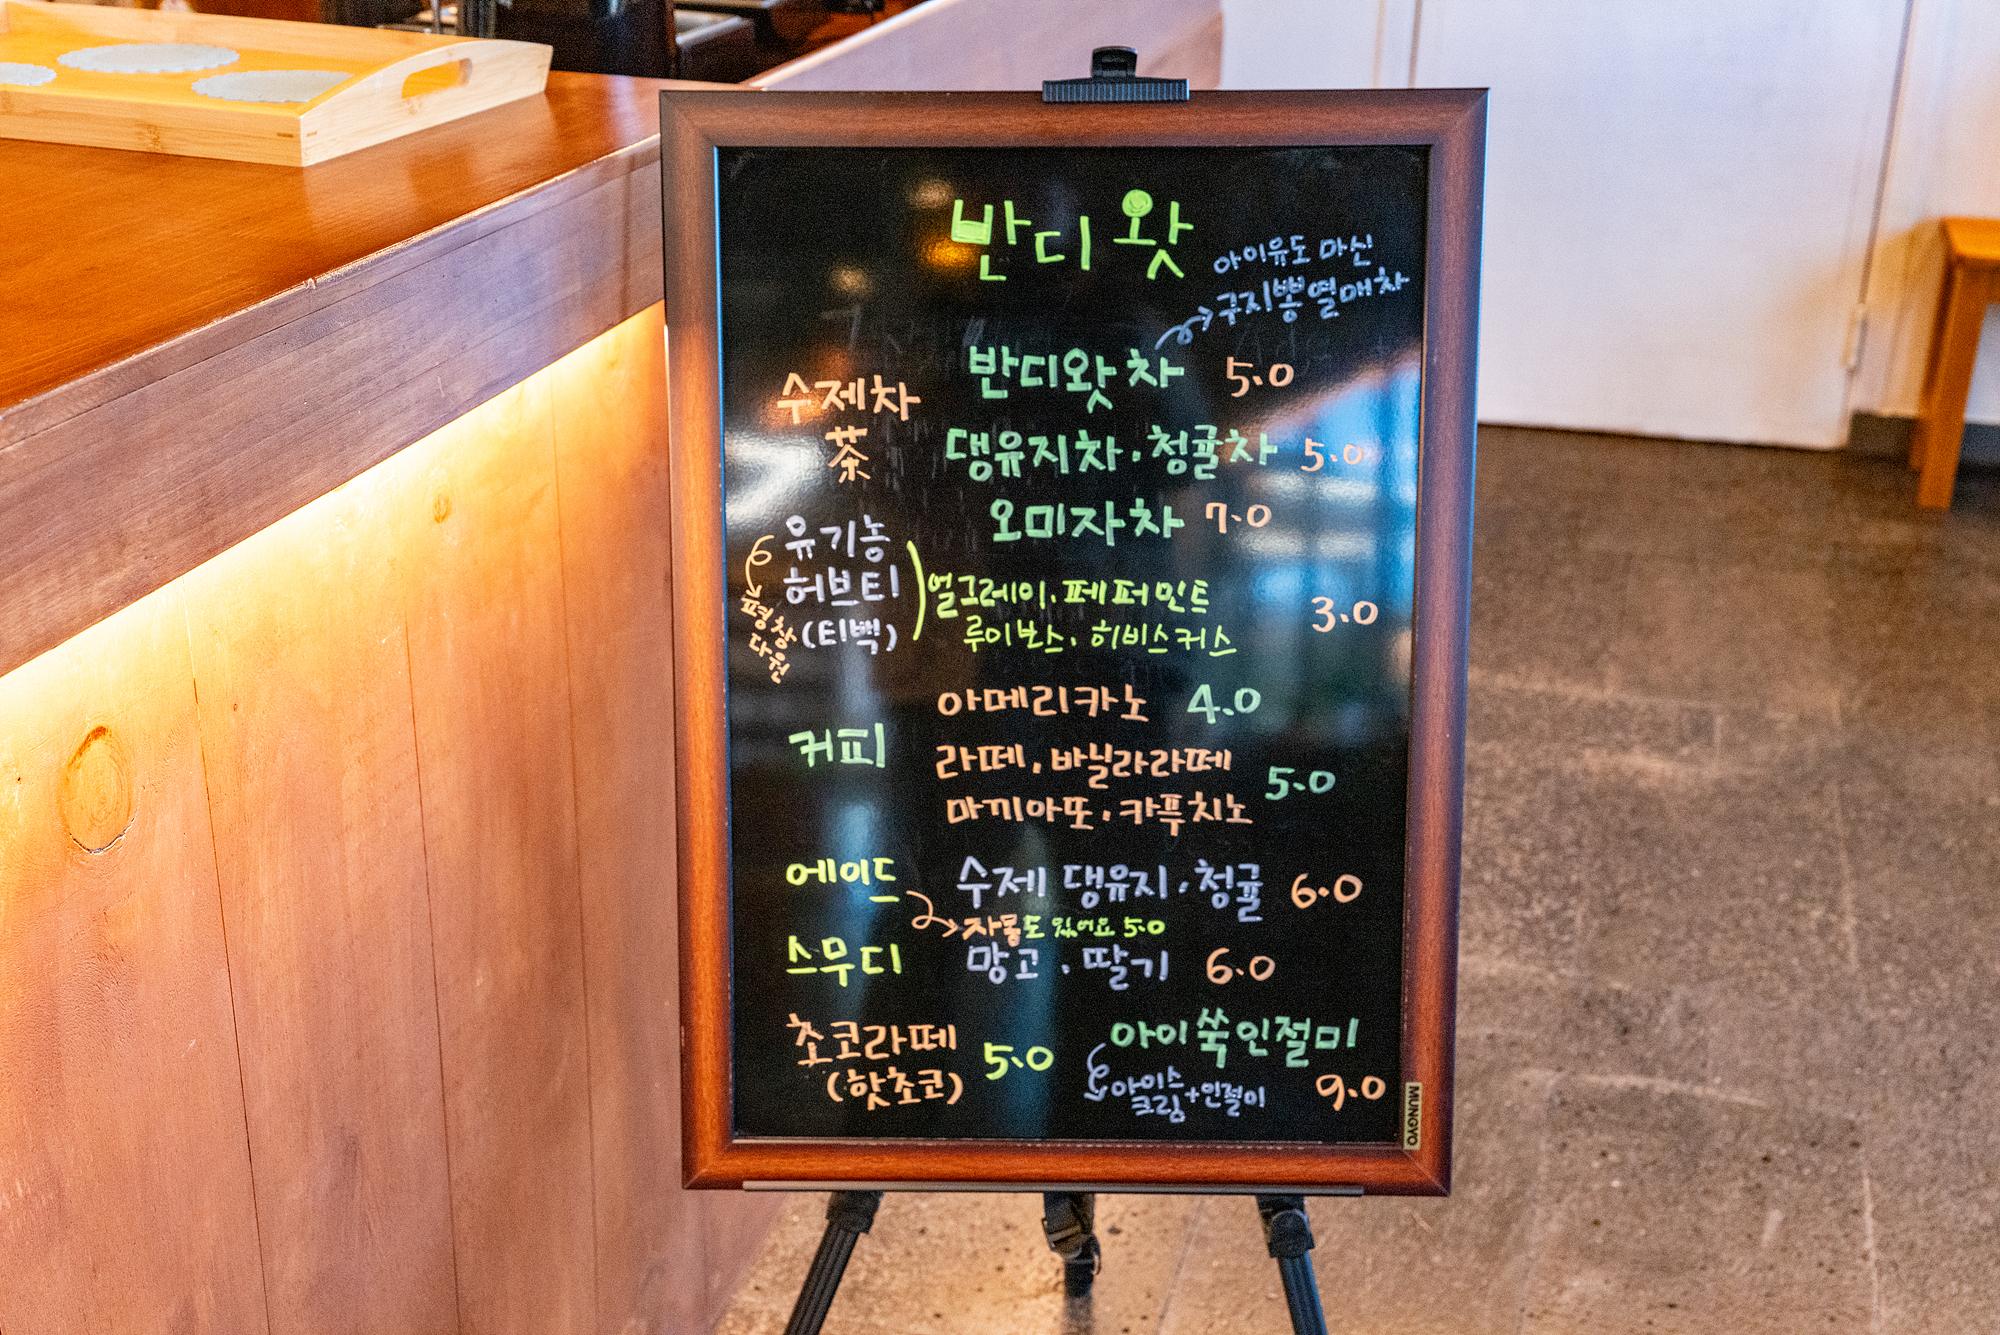 반디왓
아이유도 마신
구지뽕열매차
수제차
茶
반디왓차 5.0
댕유지차 · 청귤차 5.0
오미자차 7.0
유기농
허브티
(티백)
평창
다원
얼그레이 · 페퍼민트
루이보스 · 히비스커스
3.0
커피
아메리카노 4.0
라떼 · 바닐라라떼
마끼아또 · 카푸치노
5.0
에이드
수제 댕유지 · 청귤 6.0
자몽도 있어요 5.0
스무디
망고 · 딸기 6.0
초코라떼
(핫초코)
5.0
아이쑥인절미
아이스
크림
+인절미
9.0
MUNGYO